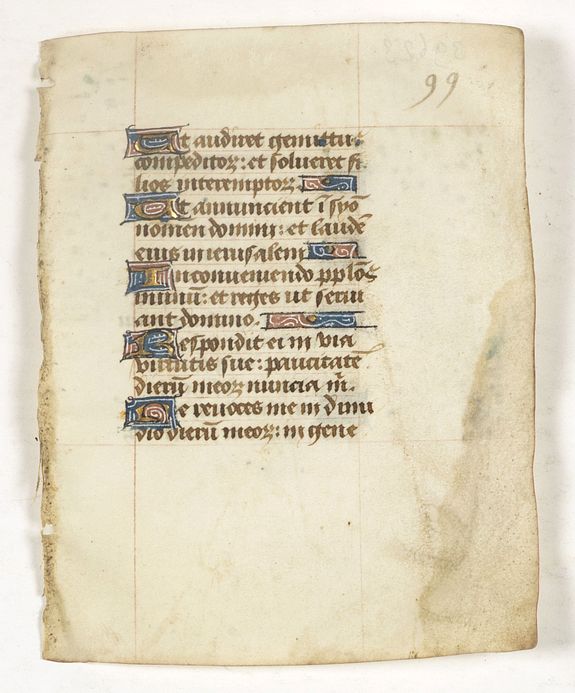 99
Ut audiret gemitus
compeditoꝝ: et solueret fi
lios interemptoꝝ
Ut annuncient ī syō
nomen domini: et laudē
eius in ierusalem
In conueniendo pplōs
in unū: et reges ut serui
ant domino.
Respondit ei in via
virtutis sue: paucitatē
dierū meoꝝ nuncia m̄.
Ne reuoces me in dimi
dio dierū meoꝝ: in gene